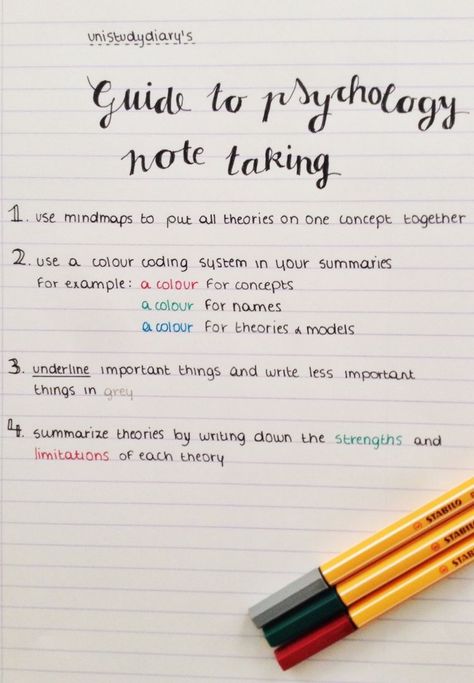 unistudydiary's
Guide to psychology
note taking
1. use mindmaps to put all theories on one concept together
2. use a colour coding system in your summaries
for example: a colour for concepts
a colour for names
a colour for theories & models
3. underline important things and write less important
things in grey
4. summarize theories by writing down the strengths and
limitations of each theory
STABILO
STABILO
STABILO